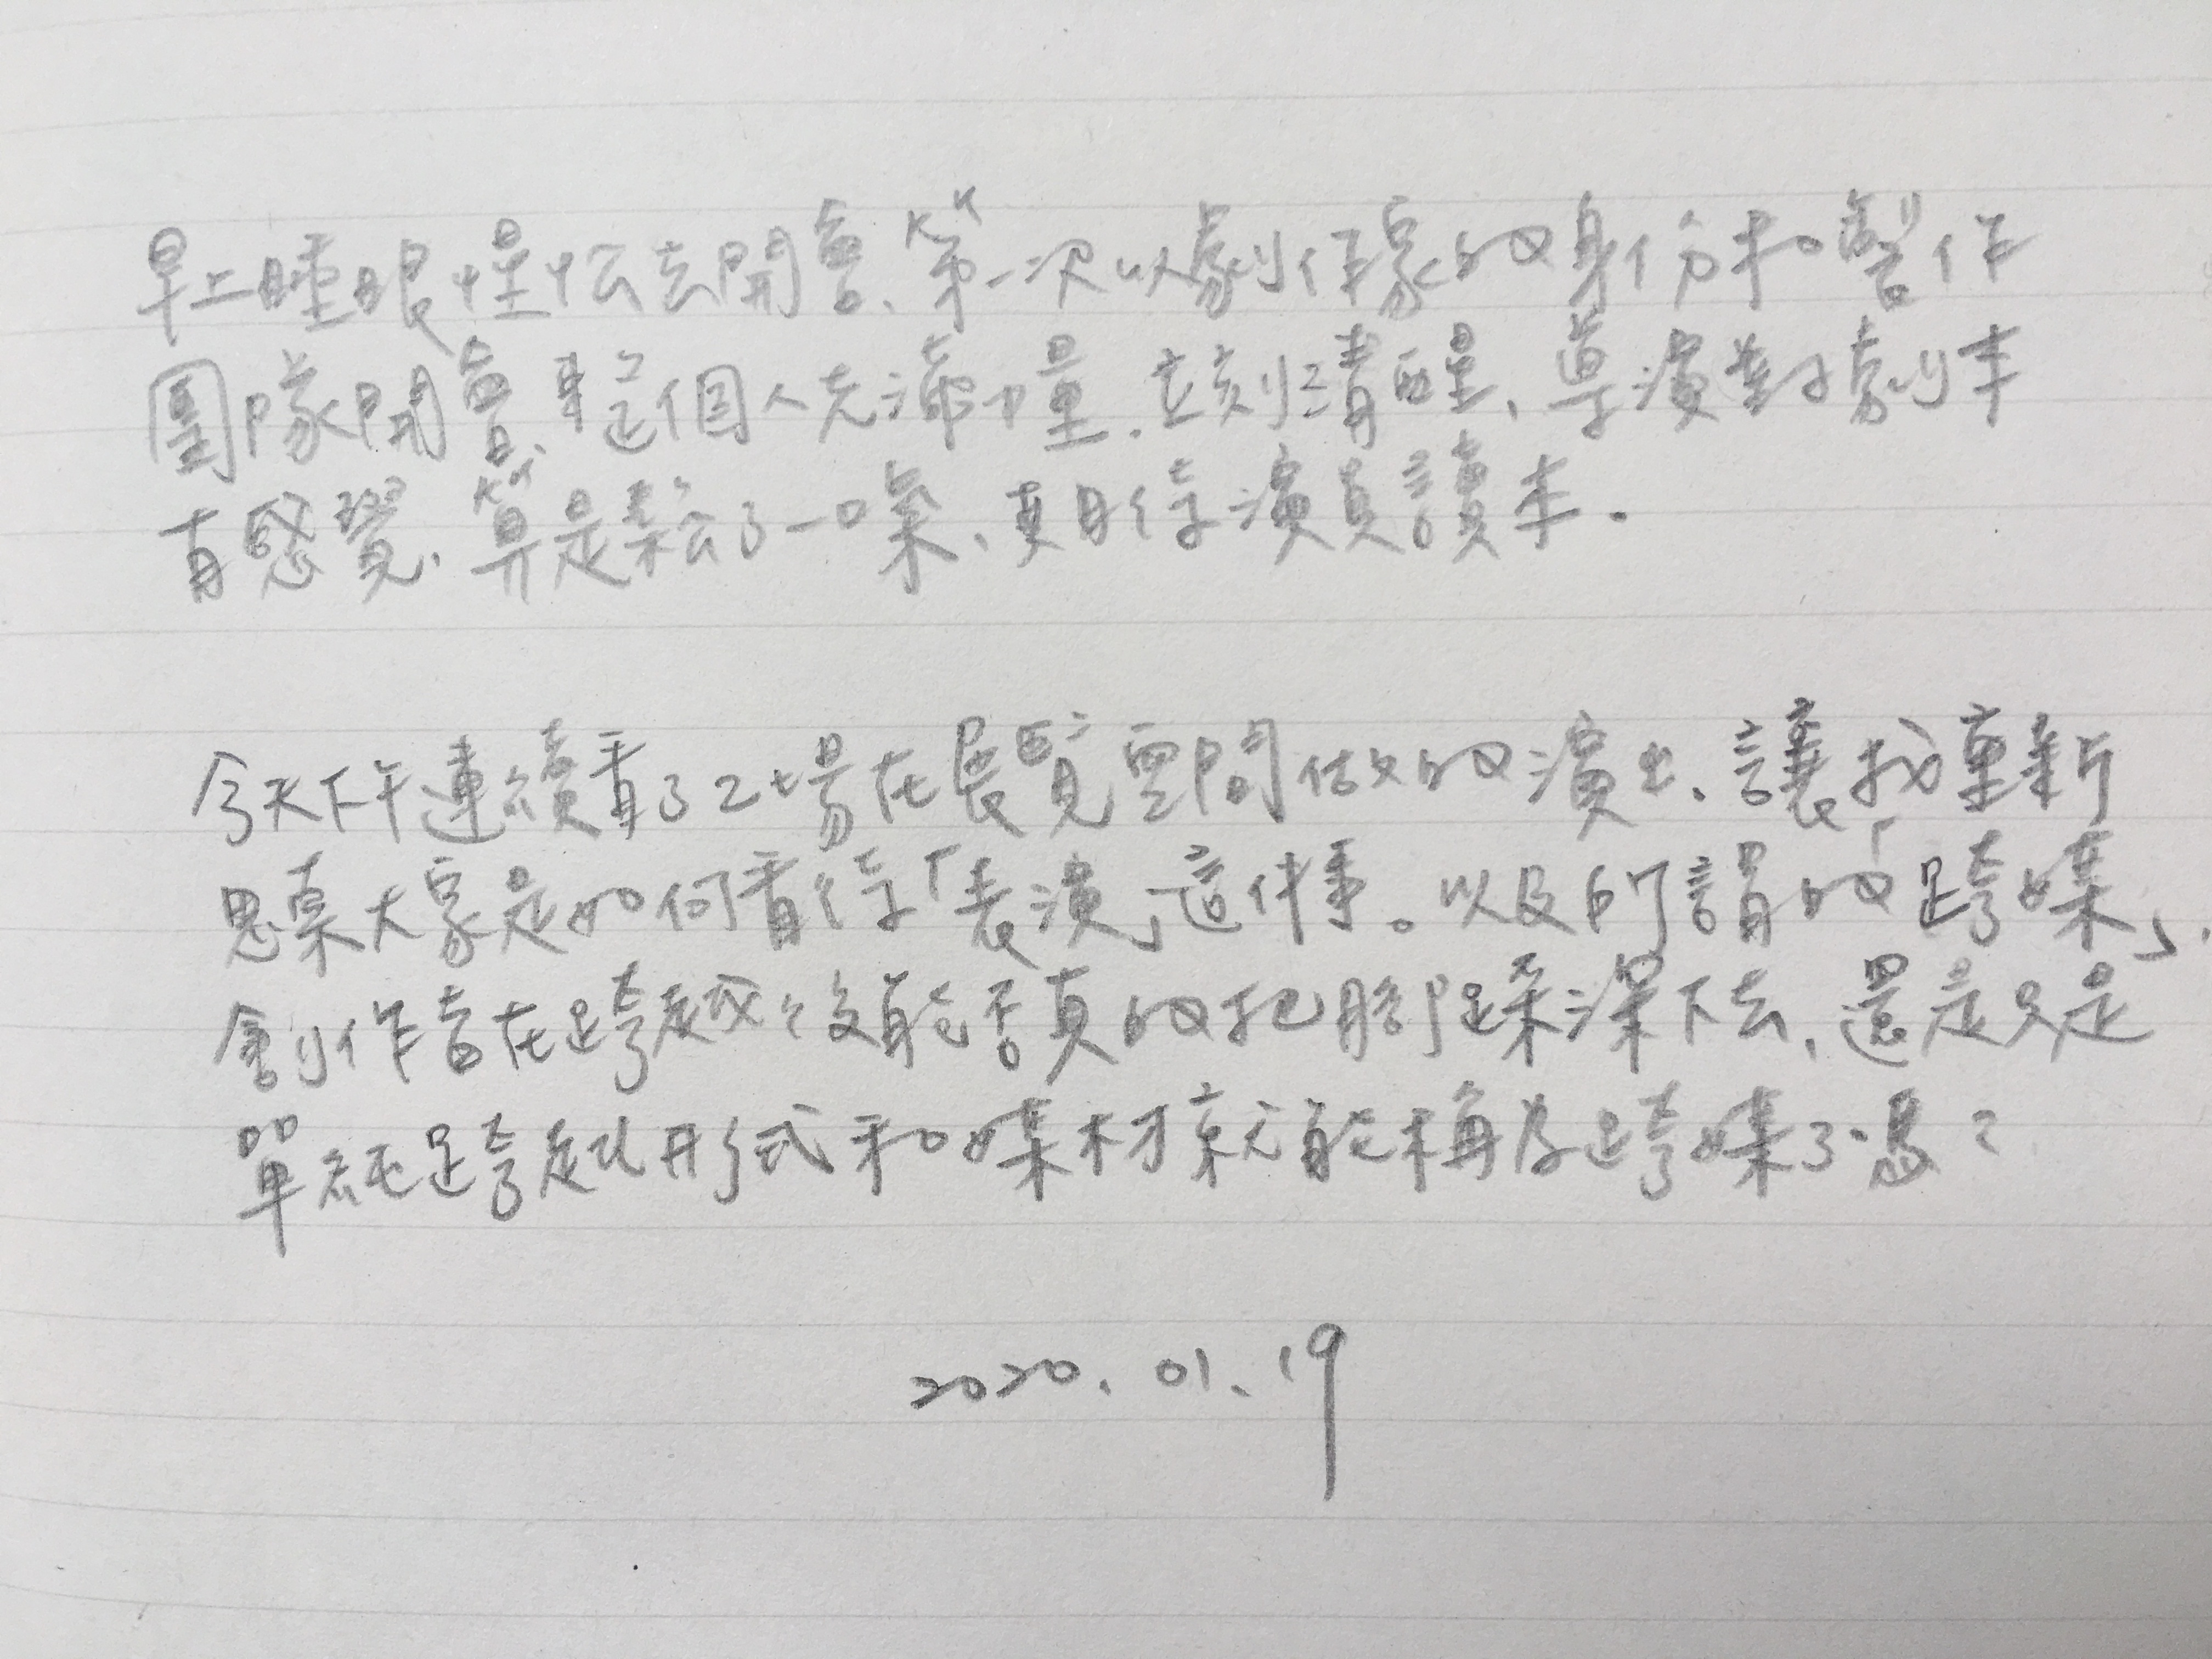 早上睡眼惺忪去開會、第一次以劇作家的身份和製作
團隊開會、整個人充滿力量.立刻清醒、導演對劇本
有感覺、算是鬆了一口氣、期待演員讀本.
今天下午連續看了2場在展覽空間做的演出、讓我重新
思索大家是如何看待「表演」這件事。以及所謂的「跨媒」.
創作者在跨越後能否真的把腳踩深下去、還是只是
單純跨越形式和媒材就能稱為跨媒了嗎?
2020.01.19